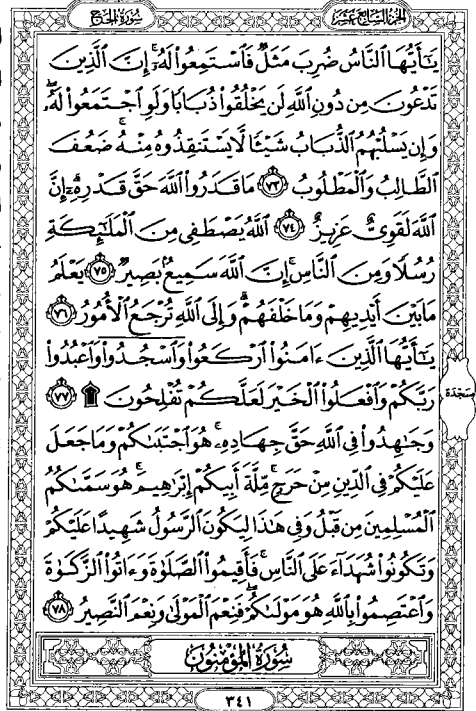 سُورَةُ الحَجِّ
الجُزْءُ السَّابِعَ عَشَرَ
يَٰٓأَيُّهَا ٱلنَّاسُ ضُرِبَ مَثَلٌ فَٱسْتَمِعُوا۟ لَهُۥٓ ۚ إِنَّ ٱلَّذِينَ
تَدْعُونَ مِن دُونِ ٱللَّهِ لَن يَخْلُقُوا۟ ذُبَابًا وَلَوِ ٱجْتَمَعُوا۟ لَهُۥ ۖ
وَإِن يَسْلُبْهُمُ ٱلذُّبَابُ شَيْـًٔا لَّا يَسْتَنقِذُوهُ مِنْهُ ۚ ضَعُفَ
ٱلطَّالِبُ وَٱلْمَطْلُوبُ ٧٣ مَا قَدَرُوا۟ ٱللَّهَ حَقَّ قَدْرِهِۦٓ ۗ إِنَّ
ٱللَّهَ لَقَوِىٌّ عَزِيزٌ ٧٤ ٱللَّهُ يَصْطَفِى مِنَ ٱلْمَلَٰٓئِكَةِ
رُسُلًا وَمِنَ ٱلنَّاسِ ۚ إِنَّ ٱللَّهَ سَمِيعٌۢ بَصِيرٌ ٧٥ يَعْلَمُ
مَا بَيْنَ أَيْدِيهِمْ وَمَا خَلْفَهُمْ ۗ وَإِلَى ٱللَّهِ تُرْجَعُ ٱلْأُمُورُ ٧٦
يَٰٓأَيُّهَا ٱلَّذِينَ ءَامَنُوا۟ ٱرْكَعُوا۟ وَٱسْجُدُوا۟ وَٱعْبُدُوا۟
رَبَّكُمْ وَٱفْعَلُوا۟ ٱلْخَيْرَ لَعَلَّكُمْ تُفْلِحُونَ ۩ ٧٧
سَجْدَة
وَجَٰهِدُوا۟ فِى ٱللَّهِ حَقَّ جِهَادِهِۦ ۚ هُوَ ٱجْتَبَىٰكُمْ وَمَا جَعَلَ
عَلَيْكُمْ فِى ٱلدِّينِ مِنْ حَرَجٍ ۚ مِّلَّةَ أَبِيكُمْ إِبْرَٰهِيمَ ۚ هُوَ سَمَّىٰكُمُ
ٱلْمُسْلِمِينَ مِن قَبْلُ وَفِى هَٰذَا لِيَكُونَ ٱلرَّسُولُ شَهِيدًا عَلَيْكُمْ
وَتَكُونُوا۟ شُهَدَآءَ عَلَى ٱلنَّاسِ ۚ فَأَقِيمُوا۟ ٱلصَّلَوٰةَ وَءَاتُوا۟ ٱلزَّكَوٰةَ
وَٱعْتَصِمُوا۟ بِٱللَّهِ هُوَ مَوْلَىٰكُمْ ۖ فَنِعْمَ ٱلْمَوْلَىٰ وَنِعْمَ ٱلنَّصِيرُ ٧٨
سُورَةُ المُؤْمِنُونَ
٣٤١